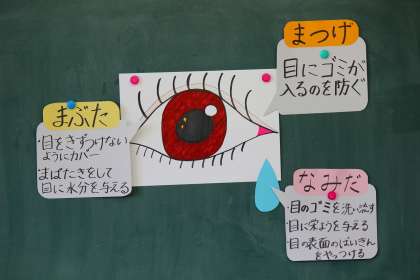 まつげ
目にゴミが
入るのを防ぐ
まぶた
・目をきずつけない
ようにカバー
・まばたきをして
目に水分を与える
なみだ
・目のゴミを洗い流す
・目に栄ようを与える
・目の表面のばいきん
をやっつける